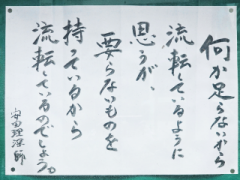 何か足らないから
流転しているように
思うが、
要らないものを
持っているから
流転しているのでしょう。
安田理深師